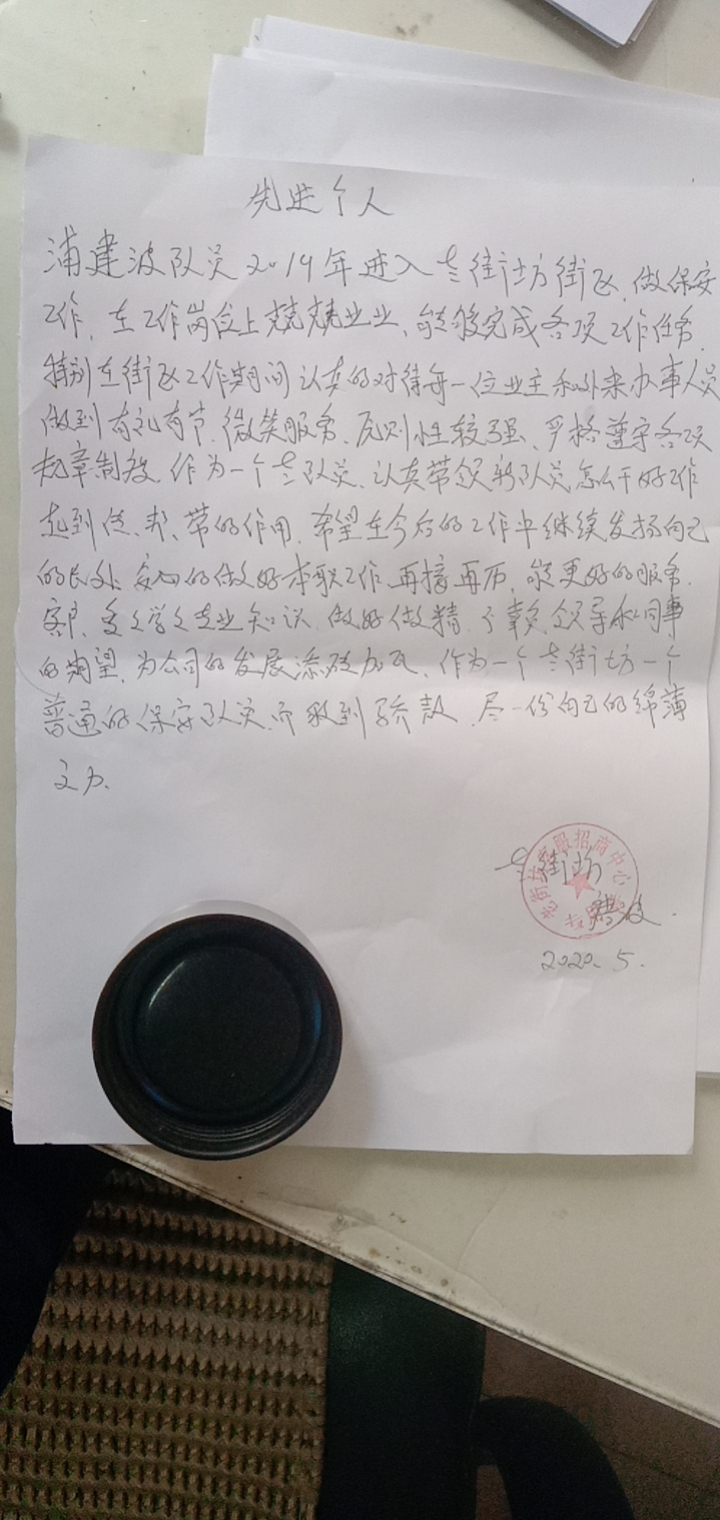 先进个人
浦建波队员2019年进入老街坊街区,做保安
工作,在工作岗位上兢兢业业、能够完成各项工作任务,
特别在街区工作期间认真的对待每一位业主和外来办事人员
做到有礼有节,微笑服务、原则性较强、严格遵守各项
规章制度,作为一个老队员,认真带领新队员怎么干好工作
起到传、帮、带的作用,希望在今后的工作中继续发扬自己
的长处,安心的做好本职工作,再接再厉,能更好的服务
客户,多学专业知识,做好做精,不辜负领导和同事
的期望,为公司的发展添砖加瓦,作为一个老街坊一个
普通的保安队员而感到骄傲,尽一份自己的绵薄
之力.
老街坊
老街坊客服招商中心
2020.5.